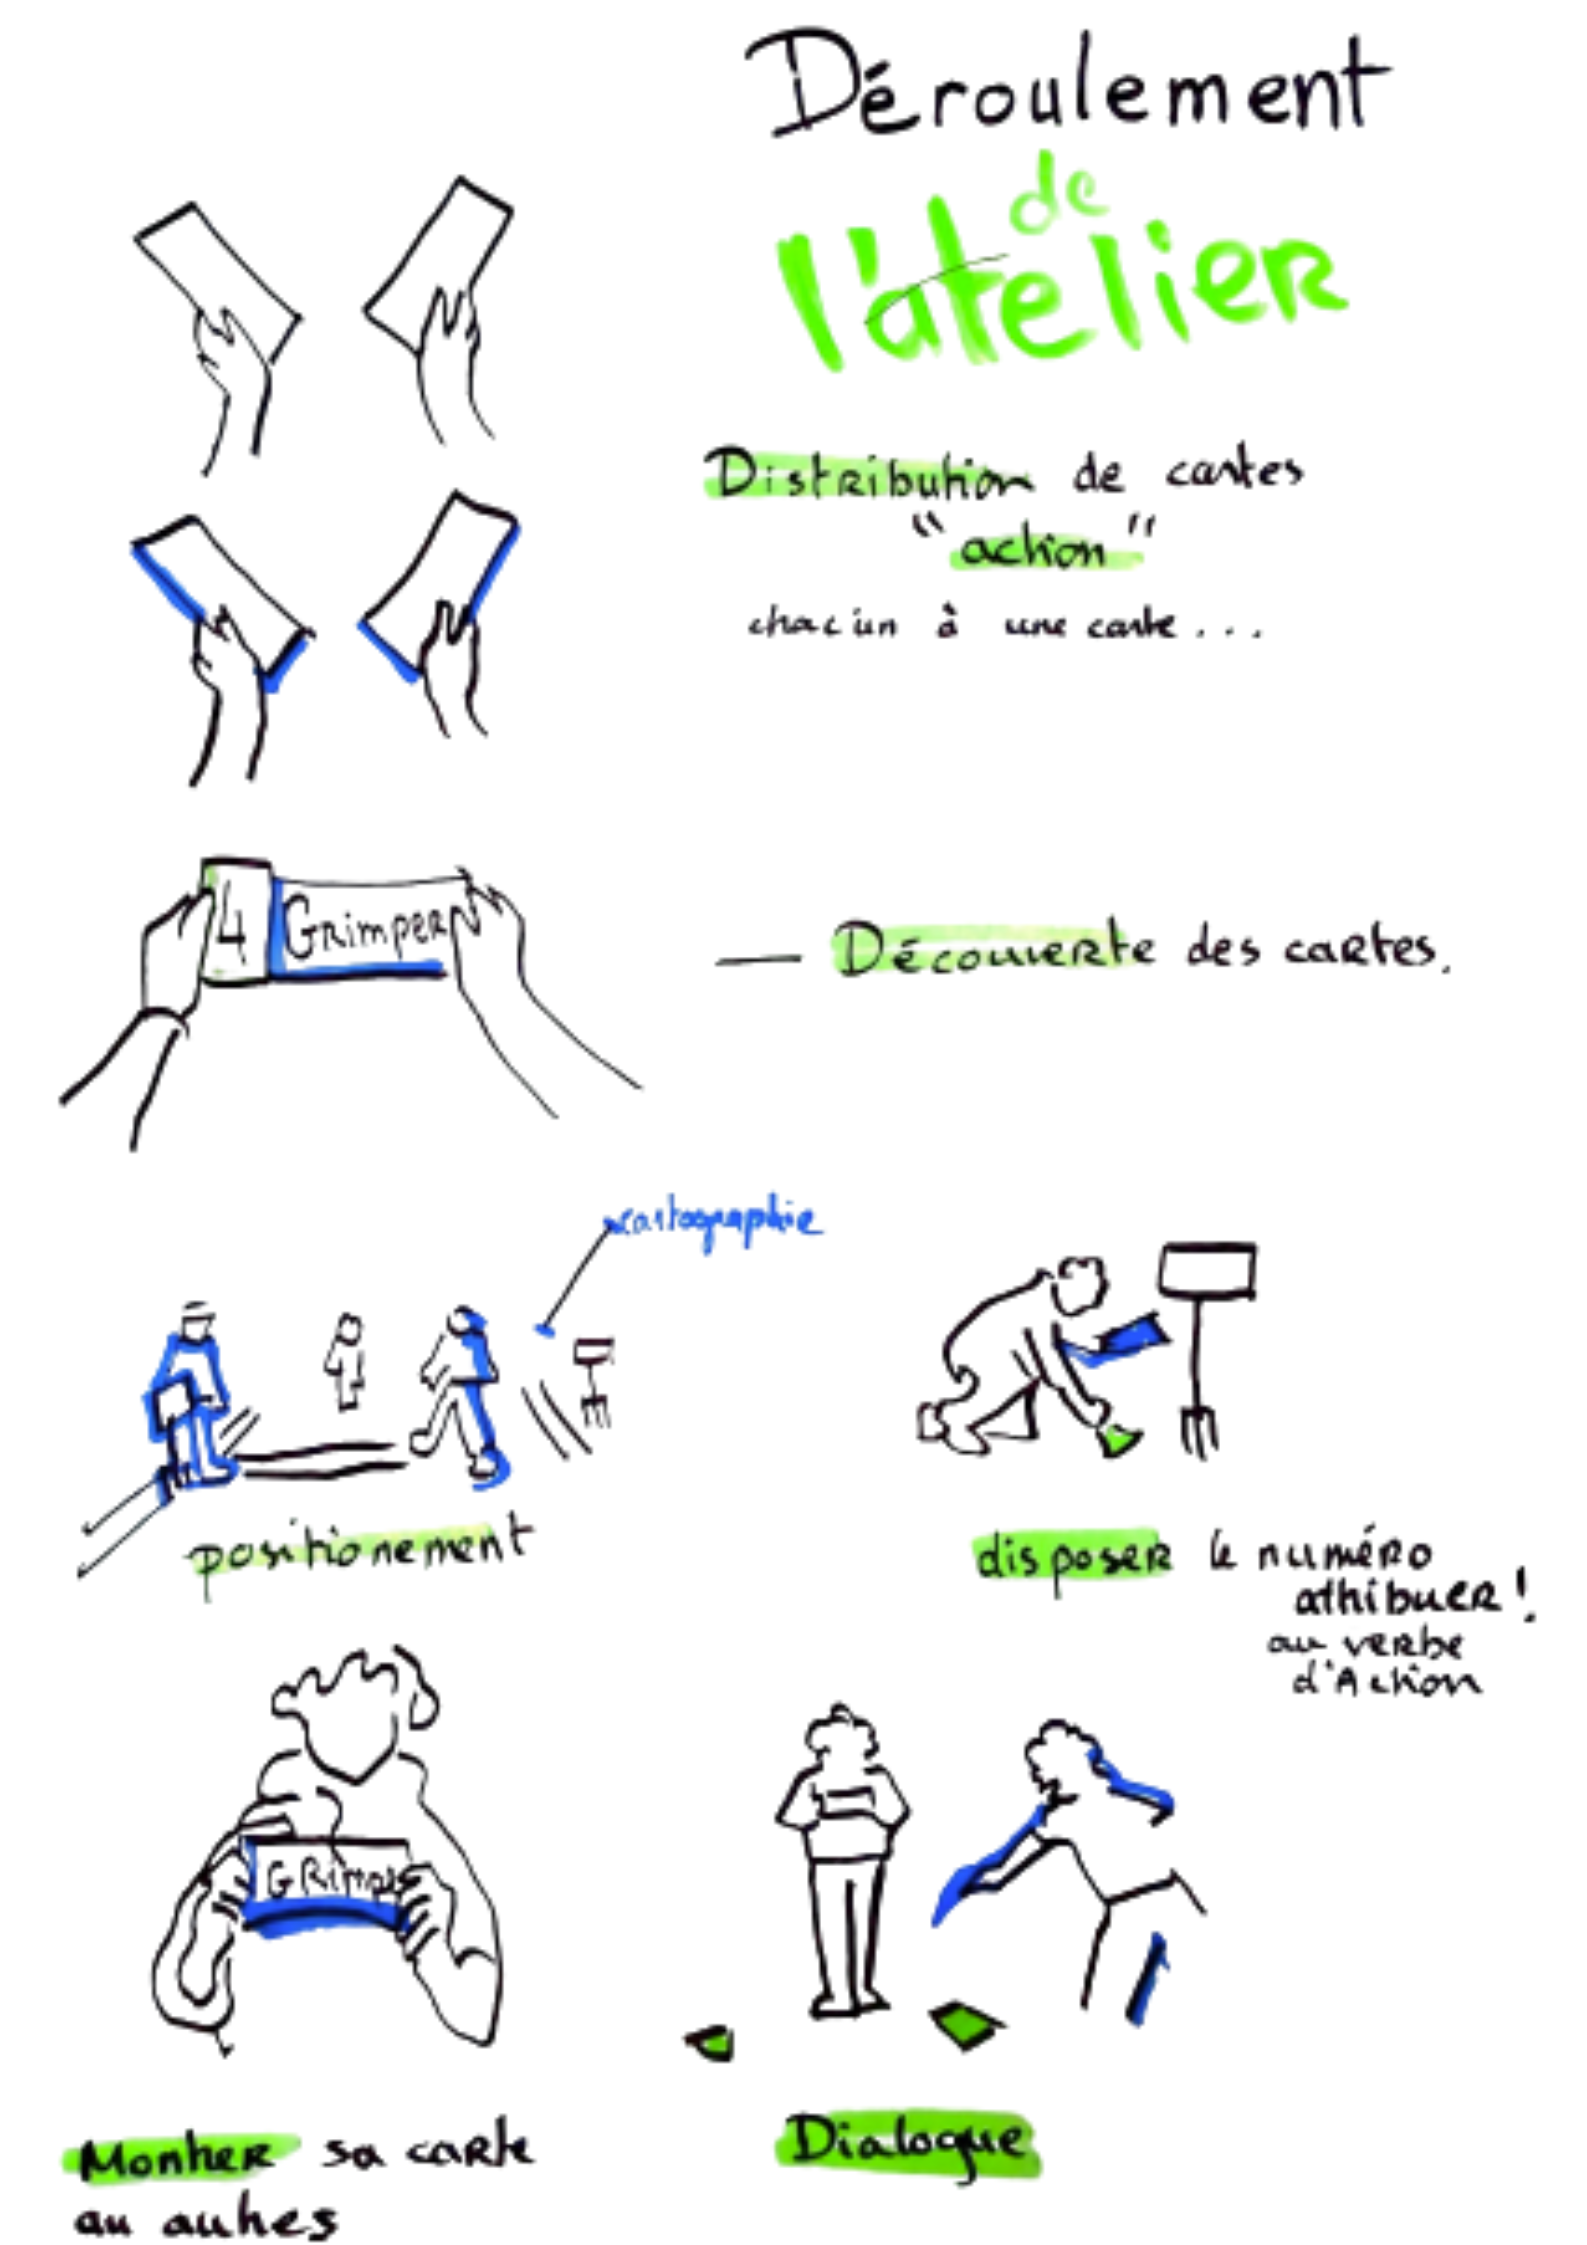 Déroulement
de
l'atelier
Distribution de cartes
"action"
chacun à une carte...
4 Grimper
— Découverte des cartes.
cartographie
positionement
disposer le numéro
attribuer!
au verbe
d'Action
GRimper
Montrer sa carte
au autres
Dialogue